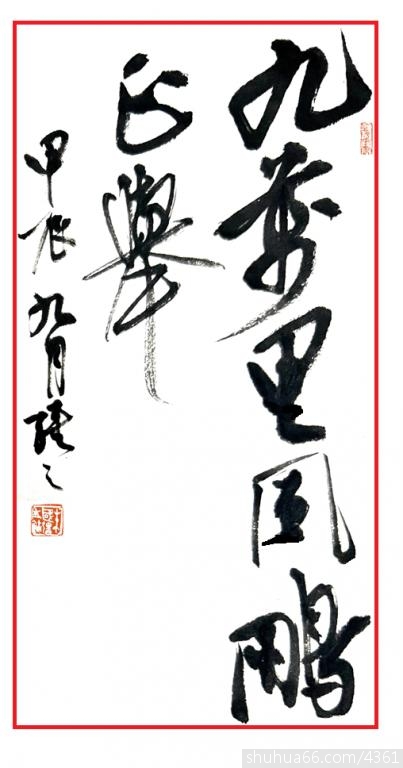 九萬里風鵬
正舉
甲辰九月
shuhua66.com/4361